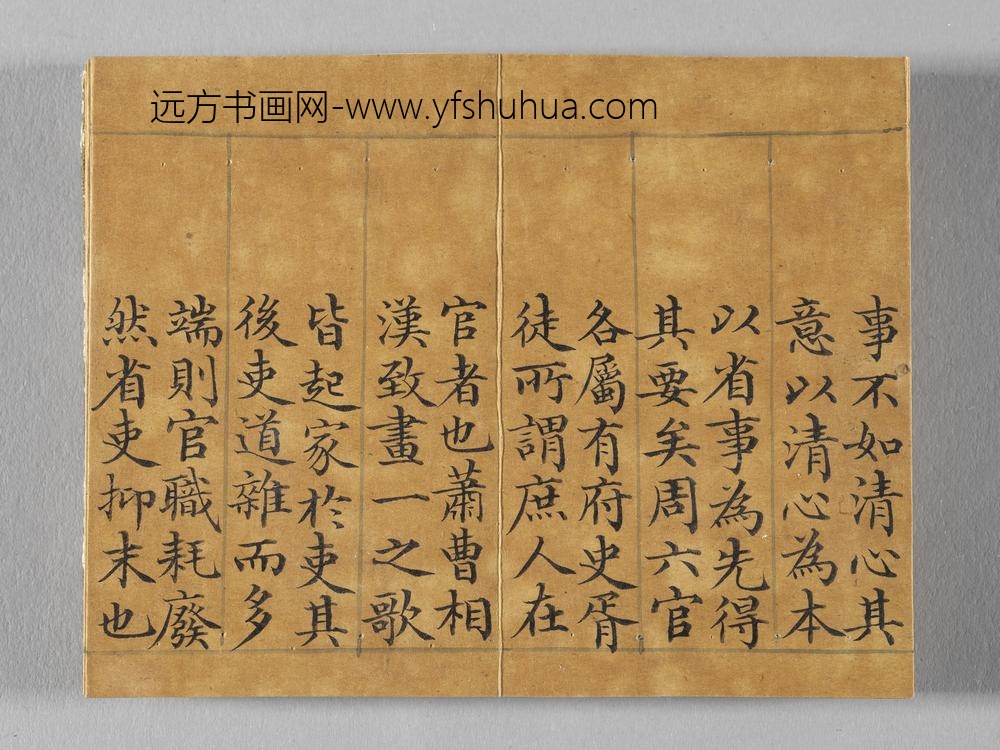 远方书画网-www.yfshuhua.com
事不如清心其
意以清心為本
以省事為先得
其要矣周六官
各屬有府史胥
徒所謂庶人在
官者也蕭曹相
漢致畫一之歌
皆起家於吏其
後吏道雜而多
端則官職耗廢
然省吏抑末也